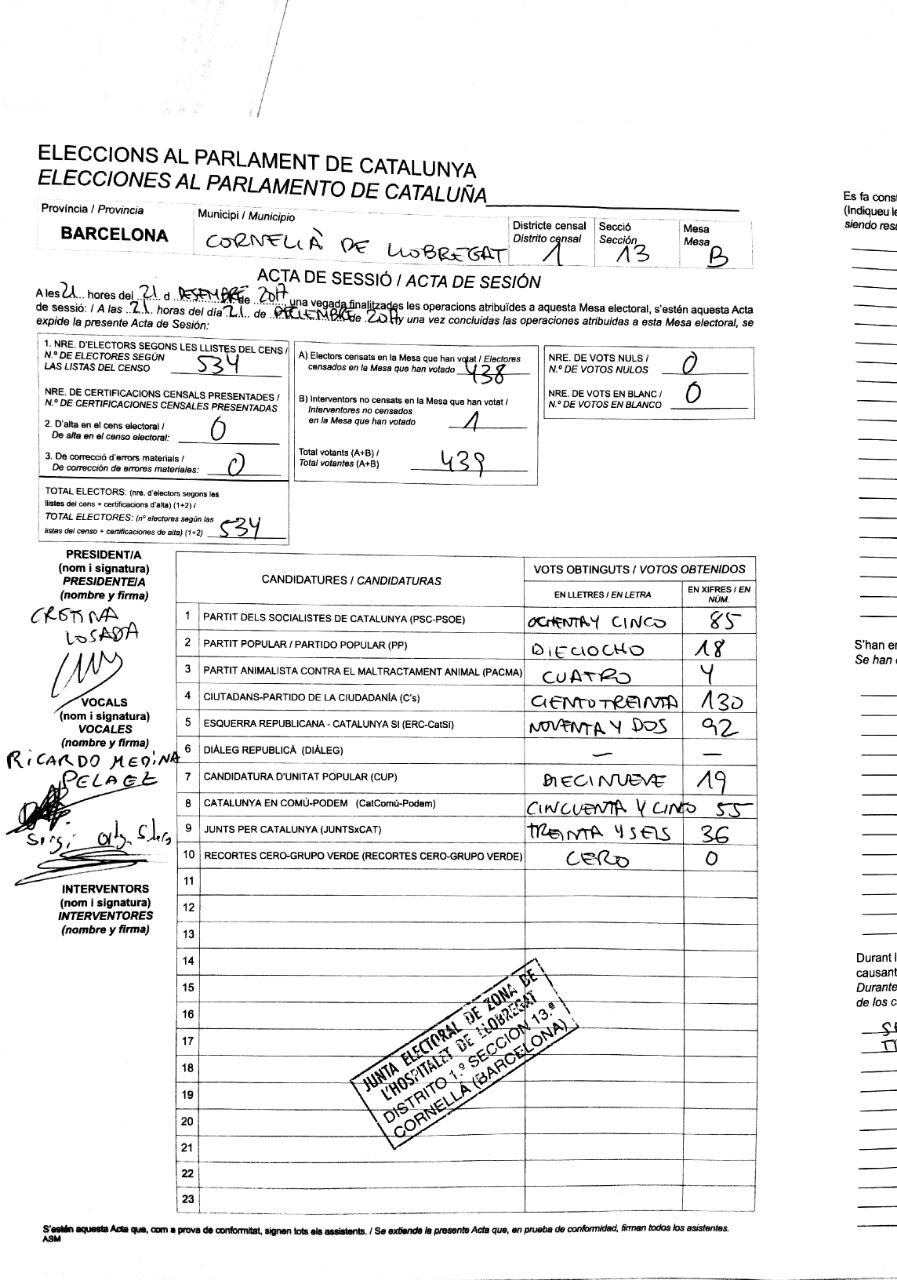 ELECCIONS AL PARLAMENT DE CATALUNYA
ELECCIONES AL PARLAMENTO DE CATALUÑA
Província / Provincia
BARCELONA
Municipi / Municipio
CORNELIÀ DE LLOBREGAT
Districte censal
Distrito censal
1
Secció
Sección
13
Mesa
Mesa
B
ACTA DE SESSIÓ / ACTA DE SESIÓN
A les 21 hores del 21 d DESEMBRE de 2017 una vegada finalitzades les operacions atribuïdes a aquesta Mesa electoral, s'estén aquesta Acta
de sessió: / A las 21 horas del día 21 de DICIEMBRE de 2017 y una vez concluidas las operaciones atribuidas a esta Mesa electoral, se
expide la presente Acta de Sesión:
1. NRE. D'ELECTORS SEGONS LES LLISTES DEL CENS /
N.º DE ELECTORES SEGÚN
LAS LISTAS DEL CENSO 534
NRE. DE CERTIFICACIONS CENSALS PRESENTADES /
N.º DE CERTIFICACIONES CENSALES PRESENTADAS
2. D'alta en el cens electoral /
De alta en el censo electoral: 0
3. De correcció d'errors materials /
De corrección de errores materiales: 0
TOTAL ELECTORS: (nre. d'electors segons les
llistes del cens + certificacions d'alta) (1+2) /
TOTAL ELECTORES: (nº electores según las
listas del censo + certificaciones de alta) (1+2) 534
A) Electors censats en la Mesa que han votat / Electores
censados en la Mesa que han votado 438
B) Interventors no censats en la Mesa que han votat /
Interventores no censados
en la Mesa que han votado 1
Total votants (A+B) /
Total votantes (A+B) 439
NRE. DE VOTS NULS /
N.º DE VOTOS NULOS 0
NRE. DE VOTS EN BLANC /
N.º DE VOTOS EN BLANCO 0
PRESIDENT/A
(nom i signatura)
PRESIDENTE/A
(nombre y firma)
CRSTINA
LOSADA
VOCALS
(nom i signatura)
VOCALES
(nombre y firma)
RICARDO MEDINA
PELAEZ
INTERVENTORS
(nom i signatura)
INTERVENTORES
(nombre y firma)
CANDIDATURES / CANDIDATURAS
VOTS OBTINGUTS / VOTOS OBTENIDOS
EN LLETRES / EN LETRA
EN XIFRES / EN
NÚM.
1 PARTIT DELS SOCIALISTES DE CATALUNYA (PSC-PSOE) OCHENTA Y CINCO 85
2 PARTIT POPULAR / PARTIDO POPULAR (PP) DIECIOCHO 18
3 PARTIT ANIMALISTA CONTRA EL MALTRACTAMENT ANIMAL (PACMA) CUATRO 4
4 CIUTADANS-PARTIDO DE LA CIUDADANÍA (C's) CIENTO TREINTA 130
5 ESQUERRA REPUBLICANA - CATALUNYA SI (ERC-CatSí) NOVENTA Y DOS 92
6 DIÀLEG REPUBLICÀ (DIÀLEG) — —
7 CANDIDATURA D'UNITAT POPULAR (CUP) DIECINUEVE 19
8 CATALUNYA EN COMÚ-PODEM (CatComú-Podem) CINCUENTA Y CINCO 55
9 JUNTS PER CATALUNYA (JUNTSxCAT) TREINTA Y SEIS 36
10 RECORTES CERO-GRUPO VERDE (RECORTES CERO-GRUPO VERDE) CERO 0
11
12
13
14
15
16
17
18
19
20
21
22
23
JUNTA ELECTORAL DE ZONA DE
L'HOSPITALET DE LLOBREGAT
DISTRITO 1.º SECCION 13.ª
CORNELLÁ (BARCELONA)
S'estén aquesta Acta que, com a prova de conformitat, signen tots els assistents. / Se extiende la presente Acta que, en prueba de conformidad, firman todos los asistentes.
ASM
Es fa const
(Indiqueu le
siendo resu
S'han en
Se han
Durant l
causant
Durante
de los c